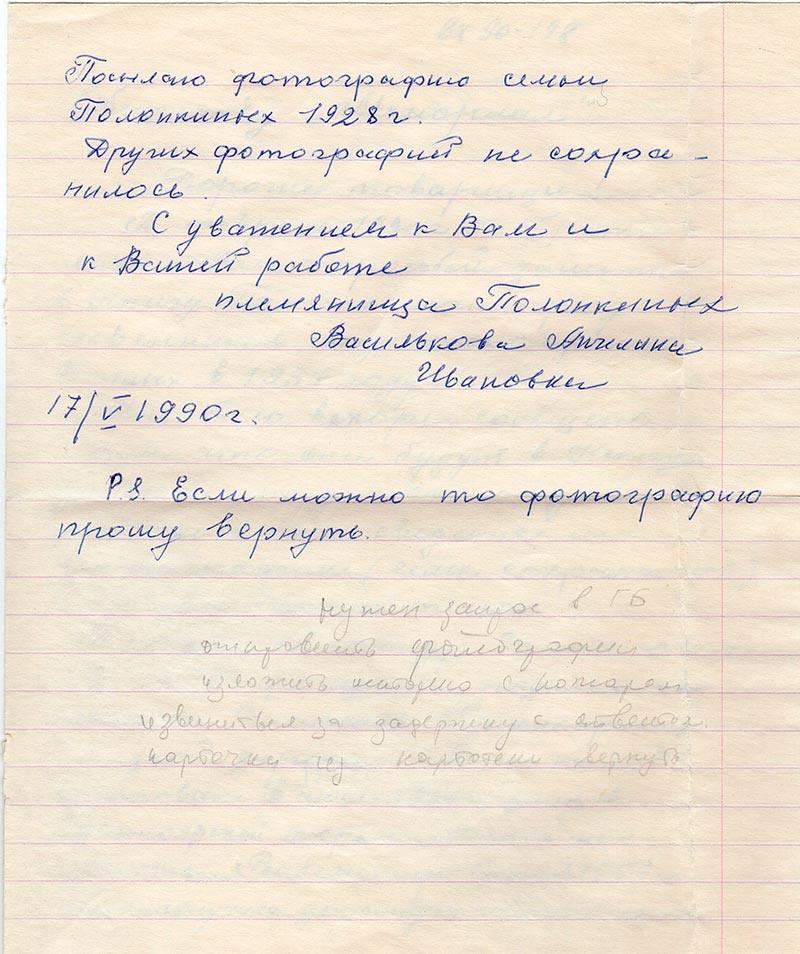 Посылаю фотографию семьи
Полонкиных 1928 г.
Других фотографий не сохра-
нилось.
С уважением к Вам и
к Вашей работе
племянница Полонкиных
Василькова Ангелина
Ивановна
17/V 1990 г.
P.S. Если можно то фотографию
прошу вернуть.
нужен запрос в ГБ
отправить фотографии
изложить историю с пожаром
извиниться за задержку с ответом.
карточки из картотеки вернуть